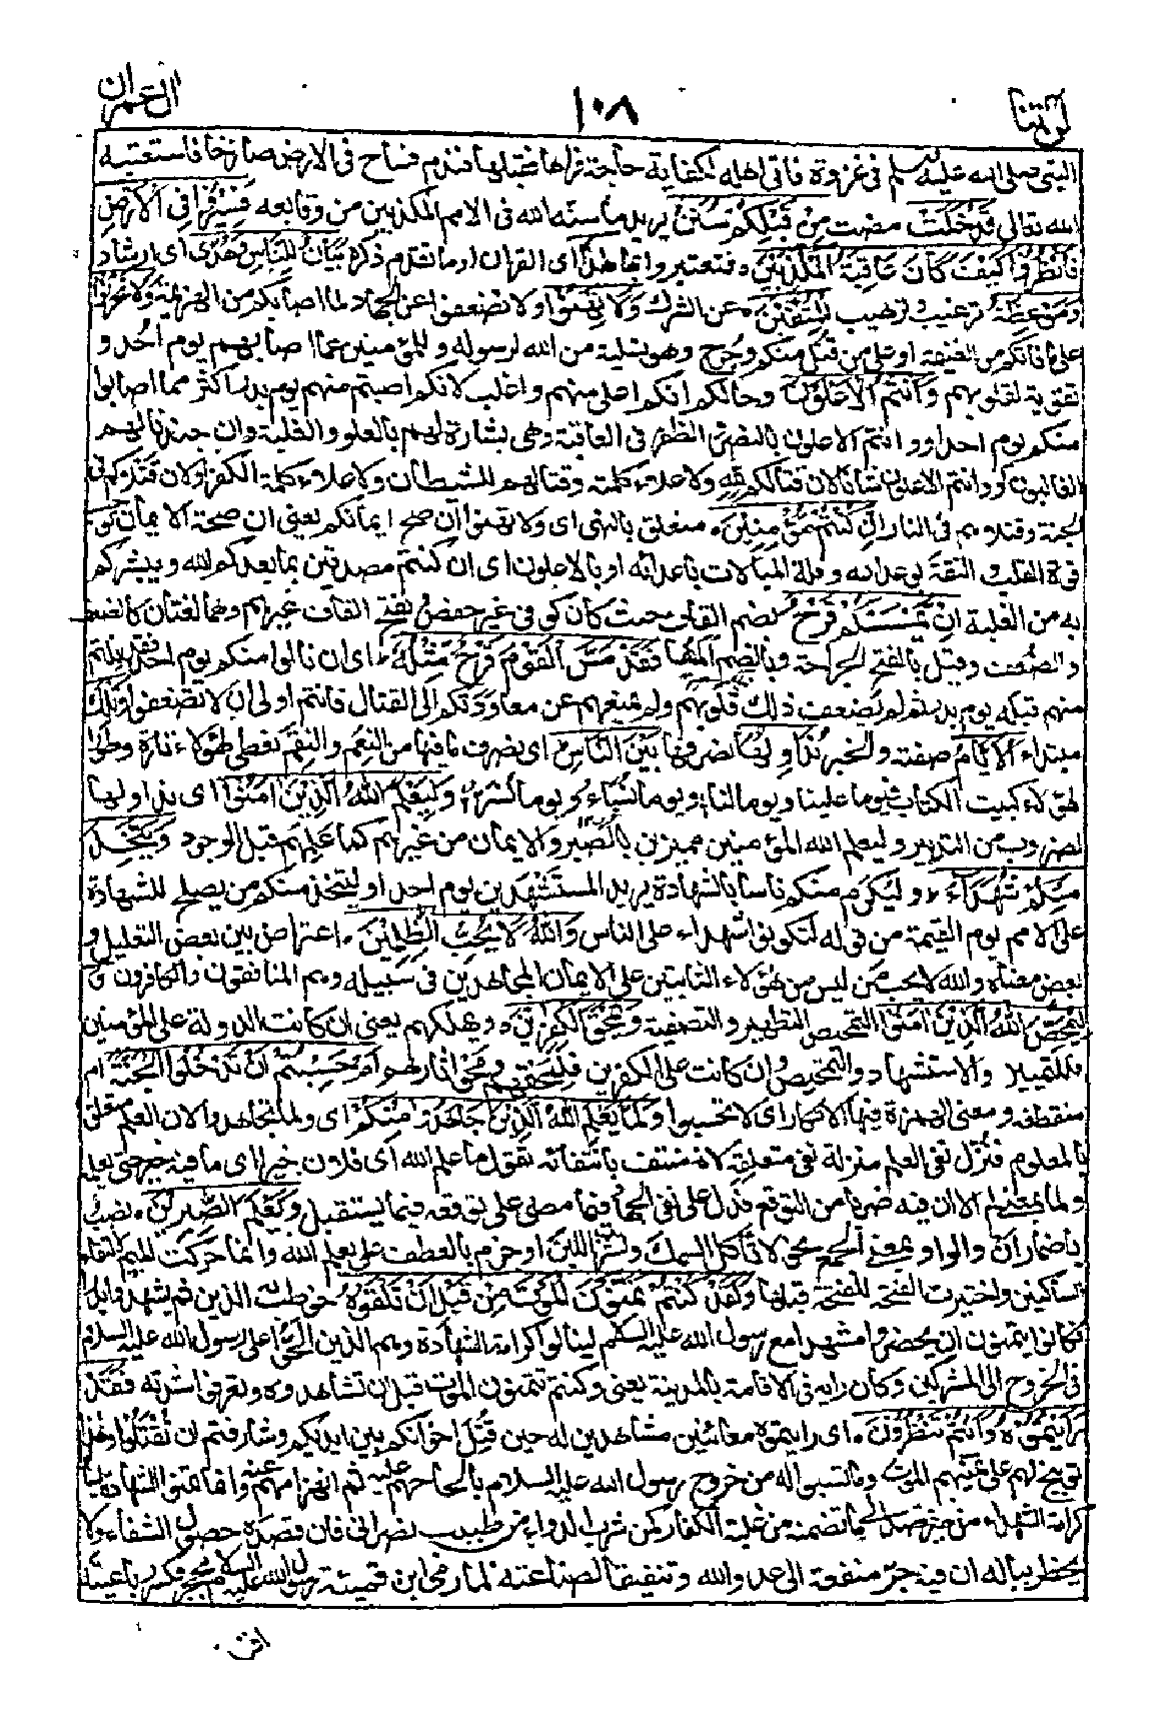 لن تنا
١٠٨
ال عمران
النبى صلى الله عليه وسلم فى غزوة فاتى اهله لكفاية حاجة فراها فقبلها فندم فساح فى الارض صارخا فاستعتبه
الله تعالى قَدْ خَلَتْ مضت مِنْ قَبْلِكُمْ سُنَنٌ يريد ما سنه الله فى الامم المكذبين من وقايعه فَسِيْرُوْا فِى الْاَرْضِ
فَانْظُرُوْا كَيْفَ كَانَ عَاقِبَةُ الْمُكَذِّبِيْنَ ه فتعتبروا بها هٰذَا اى القران او ما تقدم ذكره بَيَانٌ لِّلنَّاسِ وَهُدًى اى ارشاد
وَّمَوْعِظَةٌ ترغيب وترهيب لِّلْمُتَّقِيْنَ ه عن الشرك وَلَا تَهِنُوْا ولا تضعفوا عن الجهاد لما اصابكم من الهزيمة وَلَا تَحْزَنُوْا
على ما فاتكم من الغنيمة او على من قتل منكم وجرح وهو تسلية من الله لرسوله وللمؤمنين عما اصابهم يوم احد و
تقوية لقلوبهم وَاَنْتُمُ الْاَعْلَوْنَ وحالكم انكم اعلى منهم واغلب لانكم اصبتم منهم يوم بدر اكثر مما اصابوا
منكم يوم احد او وانتم الاعلون بالنصر والظفر فى العاقبة وهى بشارة لهم بالعلو والغلبة وان جندنا لهم
الغالبون او وانتم الاعلون شانا لان قتالكم لله ولاعلاء كلمته وقتالهم للشيطان ولاعلاء كلمة الكفر او لان قتلاكم فى
الجنة وقتلاهم فى النار اِنْ كُنْتُمْ مُّؤْمِنِيْنَ ه متعلق بالنهى اى ولا تهنوا ان صح ايمانكم يعنى ان صحة الايمان توجب
قوة القلب والثقة بوعد الله وقلة المبالات باعدائه او بالاعلون اى ان كنتم مصدقين بما يعدكم الله ويبشركم
به من الغلبة اِنْ يَّمْسَسْكُمْ قَرْحٌ بضم القاف حيث كان كوفى غير حفص بفتح القاف غيرهم وهما لغتان كالضعف
والضُّعف وقيل بالفتح الجراحة وبالضم المها فَقَدْ مَسَّ الْقَوْمَ قَرْحٌ مِّثْلُهٗ ه اى ان نالوا منكم يوم احد فقد نلتم
منهم قبله يوم بدر ثم لم يضعف ذلك قلوبهم ولم يمنعهم عن معاودتكم الى القتال فانتم اولى ان لا تضعفوا وَتِلْكَ
مبتداء الْاَيَّامُ صفته والخبر نُدَاوِلُهَا نصرفها بَيْنَ النَّاسِ اى نصرف ما فيها من النعم والنقم نعطى لهؤلاء تارة وطورا
لهؤلاء كبيت الكتاب فيوما علينا ويوما لنا: ويوما نساء ويوما نسر: وَلِيَعْلَمَ اللّٰهُ الَّذِيْنَ اٰمَنُوْا اى نداولها
لضروب من التدبير وليعلم الله المؤمنين مميزين بالصبر والايمان من غيرهم كما علمهم قبل الوجود وَيَتَّخِذَ
مِنْكُمْ شُهَدَآءَ ه وليكرم منكم ناسا بالشهادة يريد المستشهدين يوم احد او ليتخذ منكم من يصلح للشهادة
على الامم يوم القيمة من قوله لتكونوا شهداء على الناس وَاللّٰهُ لَا يُحِبُّ الظّٰلِمِيْنَ ه اعتراض بين بعض التعليل و
بعض معناه والله لا يحب من ليس من هؤلاء الثابتين على الايمان المجاهدين فى سبيله وهم المنافقون والكافرون وَ
لِيُمَحِّصَ اللّٰهُ الَّذِيْنَ اٰمَنُوْا التمحيص التطهير والتصفية وَيَمْحَقَ الْكٰفِرِيْنَ ه ويهلكهم يعنى ان كانت الدولة على المؤمنين
فللتمييز والاستشهاد والتمحيص وان كانت على الكفرين فلمحقهم ومحو اثارهم اَمْ حَسِبْتُمْ اَنْ تَدْخُلُوا الْجَنَّةَ ام
منقطعة ومعنى الهمزة فيها الانكار اى لا تحسبوا وَلَمَّا يَعْلَمِ اللّٰهُ الَّذِيْنَ جَاهَدُوْا مِنْكُمْ اى ولما تجاهدوا لان العلم متعلق
بالمعلوم فنزل نفى العلم منزلة نفى متعلقه لانه منتف بانتفائه تقول ما علم الله فى فلان خيرا اى ما فيه خير حتى يعلمه
ولما بمعنى لم الا ان فيه ضربا من التوقع فدل على نفى الجهاد فيما مضى على توقعه فيما يستقبل وَيَعْلَمَ الصّٰبِرِيْنَ ه نصب
باضمار ان والواو بمعنى الجمع نحو لا تاكل السمك وتشرب اللبن او جزم بالعطف على يعلم الله وانما حركت الميم لالتقاء
الساكنين واختيرت الفتحة لفتحة قبلها وَلَقَدْ كُنْتُمْ تَمَنَّوْنَ الْمَوْتَ مِنْ قَبْلِ اَنْ تَلْقَوْهُ خوطب الذين لم يشهدوا بدرا
وكانوا يتمنون ان يحضروا مشهدا مع رسول الله عليه السلام لينالوا كرامة الشهادة وهم الذين الحوا على رسول الله عليه السلام
فى الخروج الى المشركين وكان رايه فى الاقامة بالمدينة يعنى وكنتم تتمنون الموت قبل ان تشاهدوه وتعرفوا شدته فَقَدْ
رَاَيْتُمُوْهُ وَاَنْتُمْ تَنْظُرُوْنَ ه اى رايتموه معاينين مشاهدين له حين قتل اخوانكم بين ايديكم وشارفتم ان تقتلوا وهذا
توبيخ لهم على تمنيهم الموت وما تسببوا له من خروج رسول الله عليه السلام بالحاحهم عليه ثم انهزامهم عنه وانما تمنوا الشهادة لينالوا
كرامة الشهداء من غير قصد الى ما يتضمنه من غلبة الكفار كمن شرب الدواء من طبيب نصرانى فان قصده حصول الشفاء ولا
يخطر بباله ان فيه جر منفعة الى عدو الله وتنفيقا لصناعته لما رمى ابن قميئة رسول الله عليه السلام بحجر فكسر رباعيته